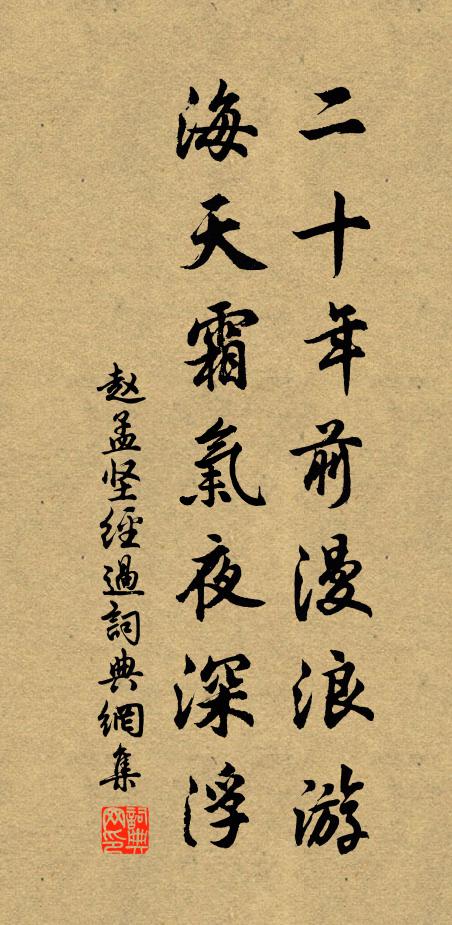 二十年前漫浪游
海天霜氣夜深浮
赵孟坚經過詞典網集
詞典网印